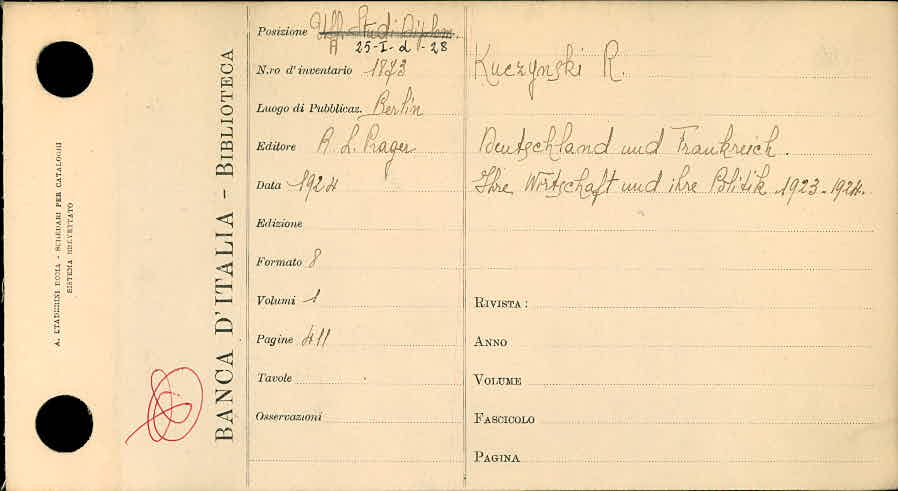 A. STADERINI ROMA - SCHEDARI PER CATALOGHI
SISTEMA BREVETTATO
BANCA D'ITALIA - BIBLIOTECA
Posizione Uff. Studi Diplom.
A 25-I-d-28
N.ro d'inventario 1873
Luogo di Pubblicaz. Berlin
Editore R L. Prager
Data 1924
Edizione
Formato 8
Volumi 1
Pagine 411
Tavole
Osservazioni
Kuczynski R.
Deutschland und Frankreich.
Ihre Wirtschaft und ihre Politik 1923-1924.
RIVISTA:
ANNO
VOLUME
FASCICOLO
PAGINA